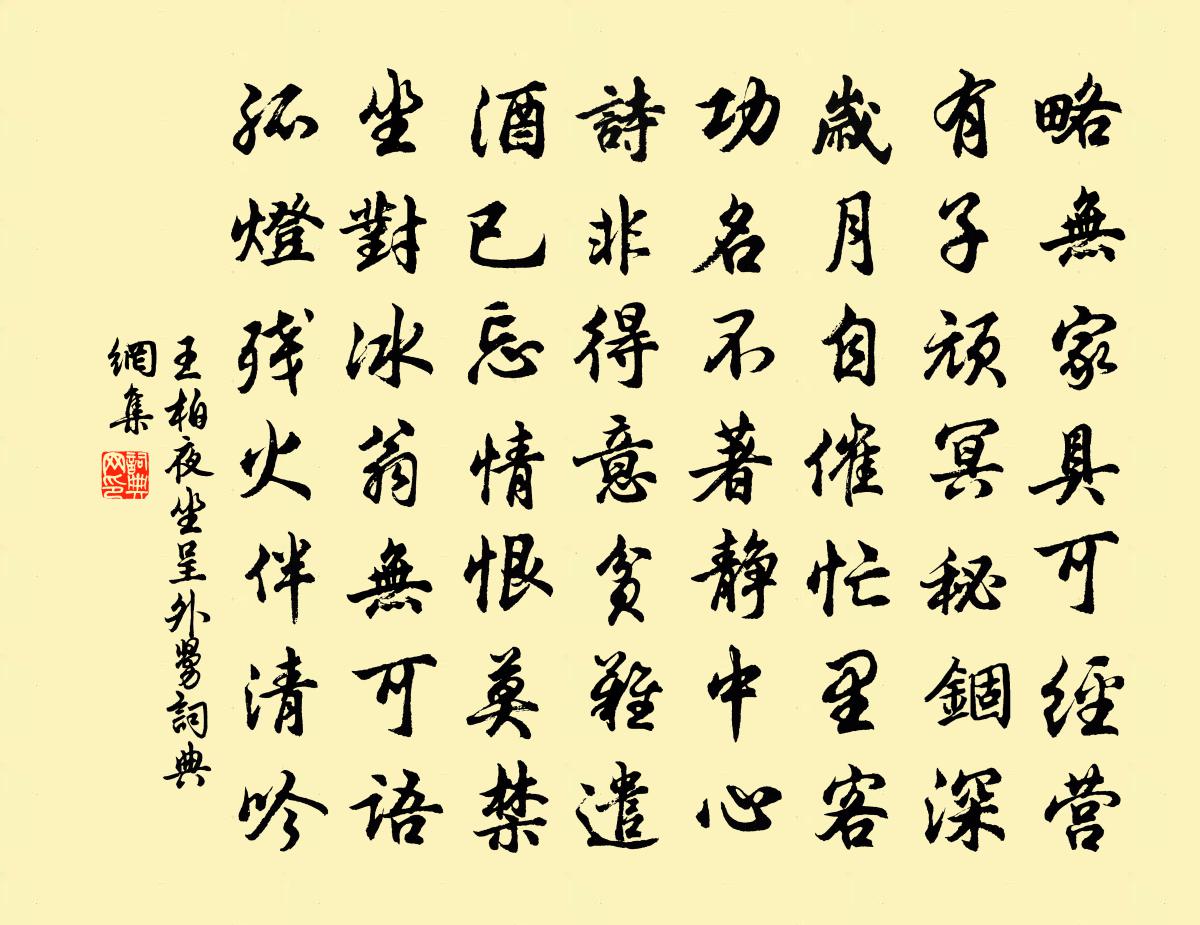 略無家具可經营
有子頑冥秘錮深
歲月自催忙里客
功名不著静中心
詩非得意貧難遣
酒已忘情恨莫禁
坐對冰翁無可語
孤燈残火伴清吟
王柏夜坐呈外舅詞典
網集
詞典
网印